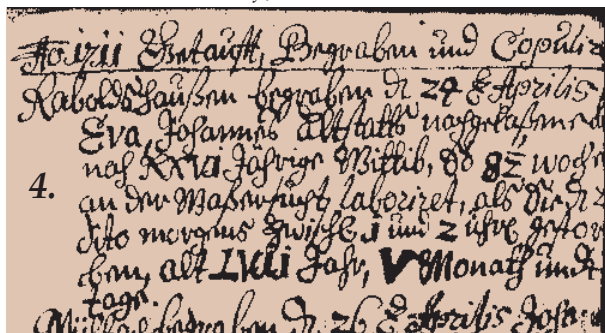 Ao 1711 Getaufft, Begraben und Copuli
Raboldshaußen begraben d 24 Aprilis
Eva, Johannes Altstatts nachgelaßene
nach XXVI Jährige Wittib, so 82 woche
4. an der Waßersucht laborizet, als die d
dito morgens zwisch 1 und 2 uhre gestor
ben, alt LXXI Jahr, V Monath und
tage.
begraben d. 26 Aprilis Joh